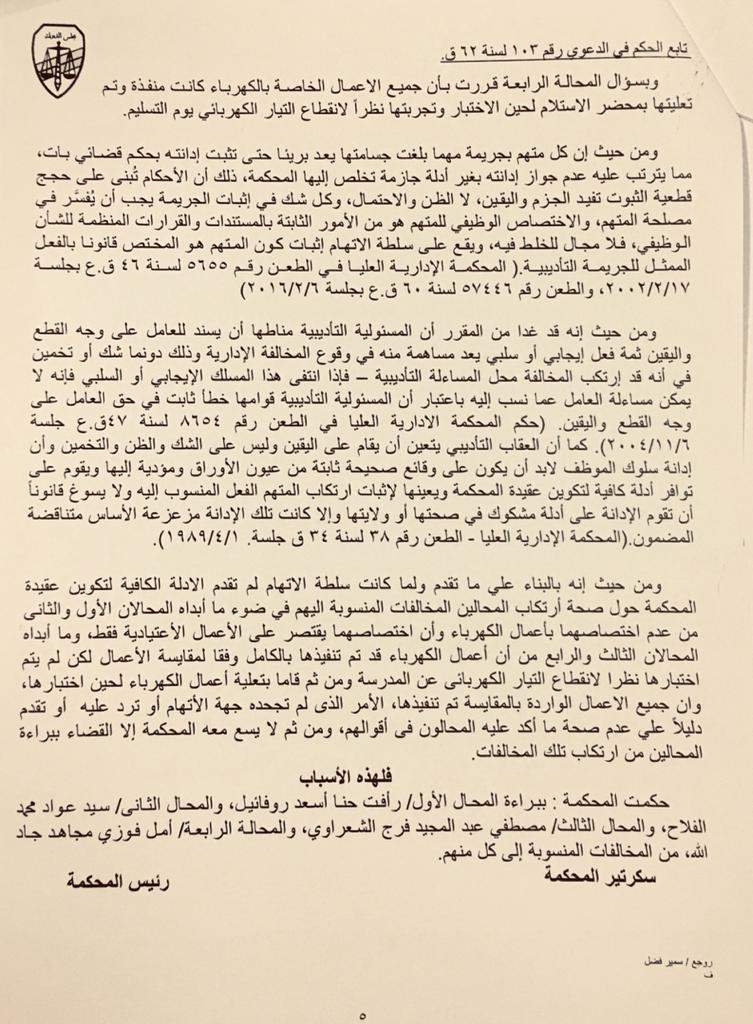 مجلس الدولة
تابع الحكم في الدعوي رقم ١٠٣ لسنة ٦٢ ق.
وبسؤال المحالة الرابعة قررت بأن جميع الاعمال الخاصة بالكهرباء كانت منفذة وتم
تعليتها بمحضر الاستلام لحين الاختبار وتجربتها نظراً لانقطاع التيار الكهربائي يوم التسليم.
ومن حيث إن كل متهم بجريمة مهما بلغت جسامتها يعد بريئا حتى تثبت إدانته بحكم قضائي بات،
مما يترتب عليه عدم جواز إدانته بغير أدلة جازمة تخلص إليها المحكمة، ذلك أن الأحكام تُبنى على حجج
قطعية الثبوت تفيد الجزم واليقين، لا الظن والاحتمال، وكل شك في إثبات الجريمة يجب أن يُفسَّر في
مصلحة المتهم، والاختصاص الوظيفي للمتهم هو من الأمور الثابتة بالمستندات والقرارات المنظمة للشأن
الوظيفي، فلا مجال للخلط فيه، ويقع على سلطة الاتهام إثبات كون المتهم هو المختص قانونا بالفعل
الممثل للجريمة التأديبية.( المحكمة الإدارية العليا في الطعن رقم ٥٦٥٥ لسنة ٤٦ ق.ع بجلسة
٢٠٠٢/٢/١٧، والطعن رقم ٥٧٤٤٦ لسنة ٦٠ ق.ع بجلسة ٢٠١٦/٢/٦)
ومن حيث إنه قد غدا من المقرر أن المسئولية التأديبية مناطها أن يسند للعامل على وجه القطع
واليقين ثمة فعل إيجابي أو سلبي يعد مساهمة منه في وقوع المخالفة الإدارية وذلك دونما شك أو تخمين
في أنه قد إرتكب المخالفة محل المساءلة التأديبية – فإذا انتفى هذا المسلك الإيجابي أو السلبي فإنه لا
يمكن مساءلة العامل عما نسب إليه باعتبار أن المسئولية التأديبية قوامها خطأ ثابت في حق العامل على
وجه القطع واليقين. (حكم المحكمة الادارية العليا في الطعن رقم ٨٦٥٤ لسنة ٤٧ق.ع جلسة
٢٠٠٤/١١/٦). كما أن العقاب التأديبي يتعين أن يقام على اليقين وليس على الشك والظن والتخمين وأن
إدانة سلوك الموظف لابد أن يكون على وقائع صحيحة ثابتة من عيون الأوراق ومؤدية إليها ويقوم على
توافر أدلة كافية لتكوين عقيدة المحكمة ويعينها لإثبات ارتكاب المتهم الفعل المنسوب إليه ولا يسوغ قانوناً
أن تقوم الإدانة على أدلة مشكوك في صحتها أو ولايتها وإلا كانت تلك الإدانة مزعزعة الأساس متناقضة
المضمون.(المحكمة الإدارية العليا - الطعن رقم ٣٨ لسنة ٣٤ ق جلسة. ١٩٨٩/٤/١).
ومن حيث إنه بالبناء علي ما تقدم ولما كانت سلطة الاتهام لم تقدم الادلة الكافية لتكوين عقيدة
المحكمة حول صحة أرتكاب المحالين المخالفات المنسوبة اليهم في ضوء ما أبداه المحالان الأول والثانى
من عدم اختصاصهما بأعمال الكهرباء وأن اختصاصهما يقتصر على الأعمال الأعتيادية فقط، وما أبداه
المحالان الثالث والرابع من أن أعمال الكهرباء قد تم تنفيذها بالكامل وفقا لمقايسة الأعمال لكن لم يتم
اختبارها نظرا لانقطاع التيار الكهربائى عن المدرسة ومن ثم قاما بتعلية أعمال الكهرباء لحين اختبارها،
وان جميع الاعمال الواردة بالمقايسة تم تنفيذها، الأمر الذى لم تجحده جهة الأتهام أو ترد عليه أو تقدم
دليلاً علي عدم صحة ما أكد عليه المحالون فى أقوالهم، ومن ثم لا يسع معه المحكمة إلا القضاء ببراءة
المحالين من ارتكاب تلك المخالفات.
فلهذه الأسباب
حكمت المحكمة : ببراءة المحال الأول/ رأفت حنا أسعد روفائيل، والمحال الثانى/ سيد عواد محمد
الفلاح، والمحال الثالث/ مصطفي عبد المجيد فرج الشعراوي، والمحالة الرابعة/ أمل فوزي مجاهد جاد
الله، من المخالفات المنسوبة إلى كل منهم.
سكرتير المحكمة رئيس المحكمة
روجع / سمير فضل
ف
٥